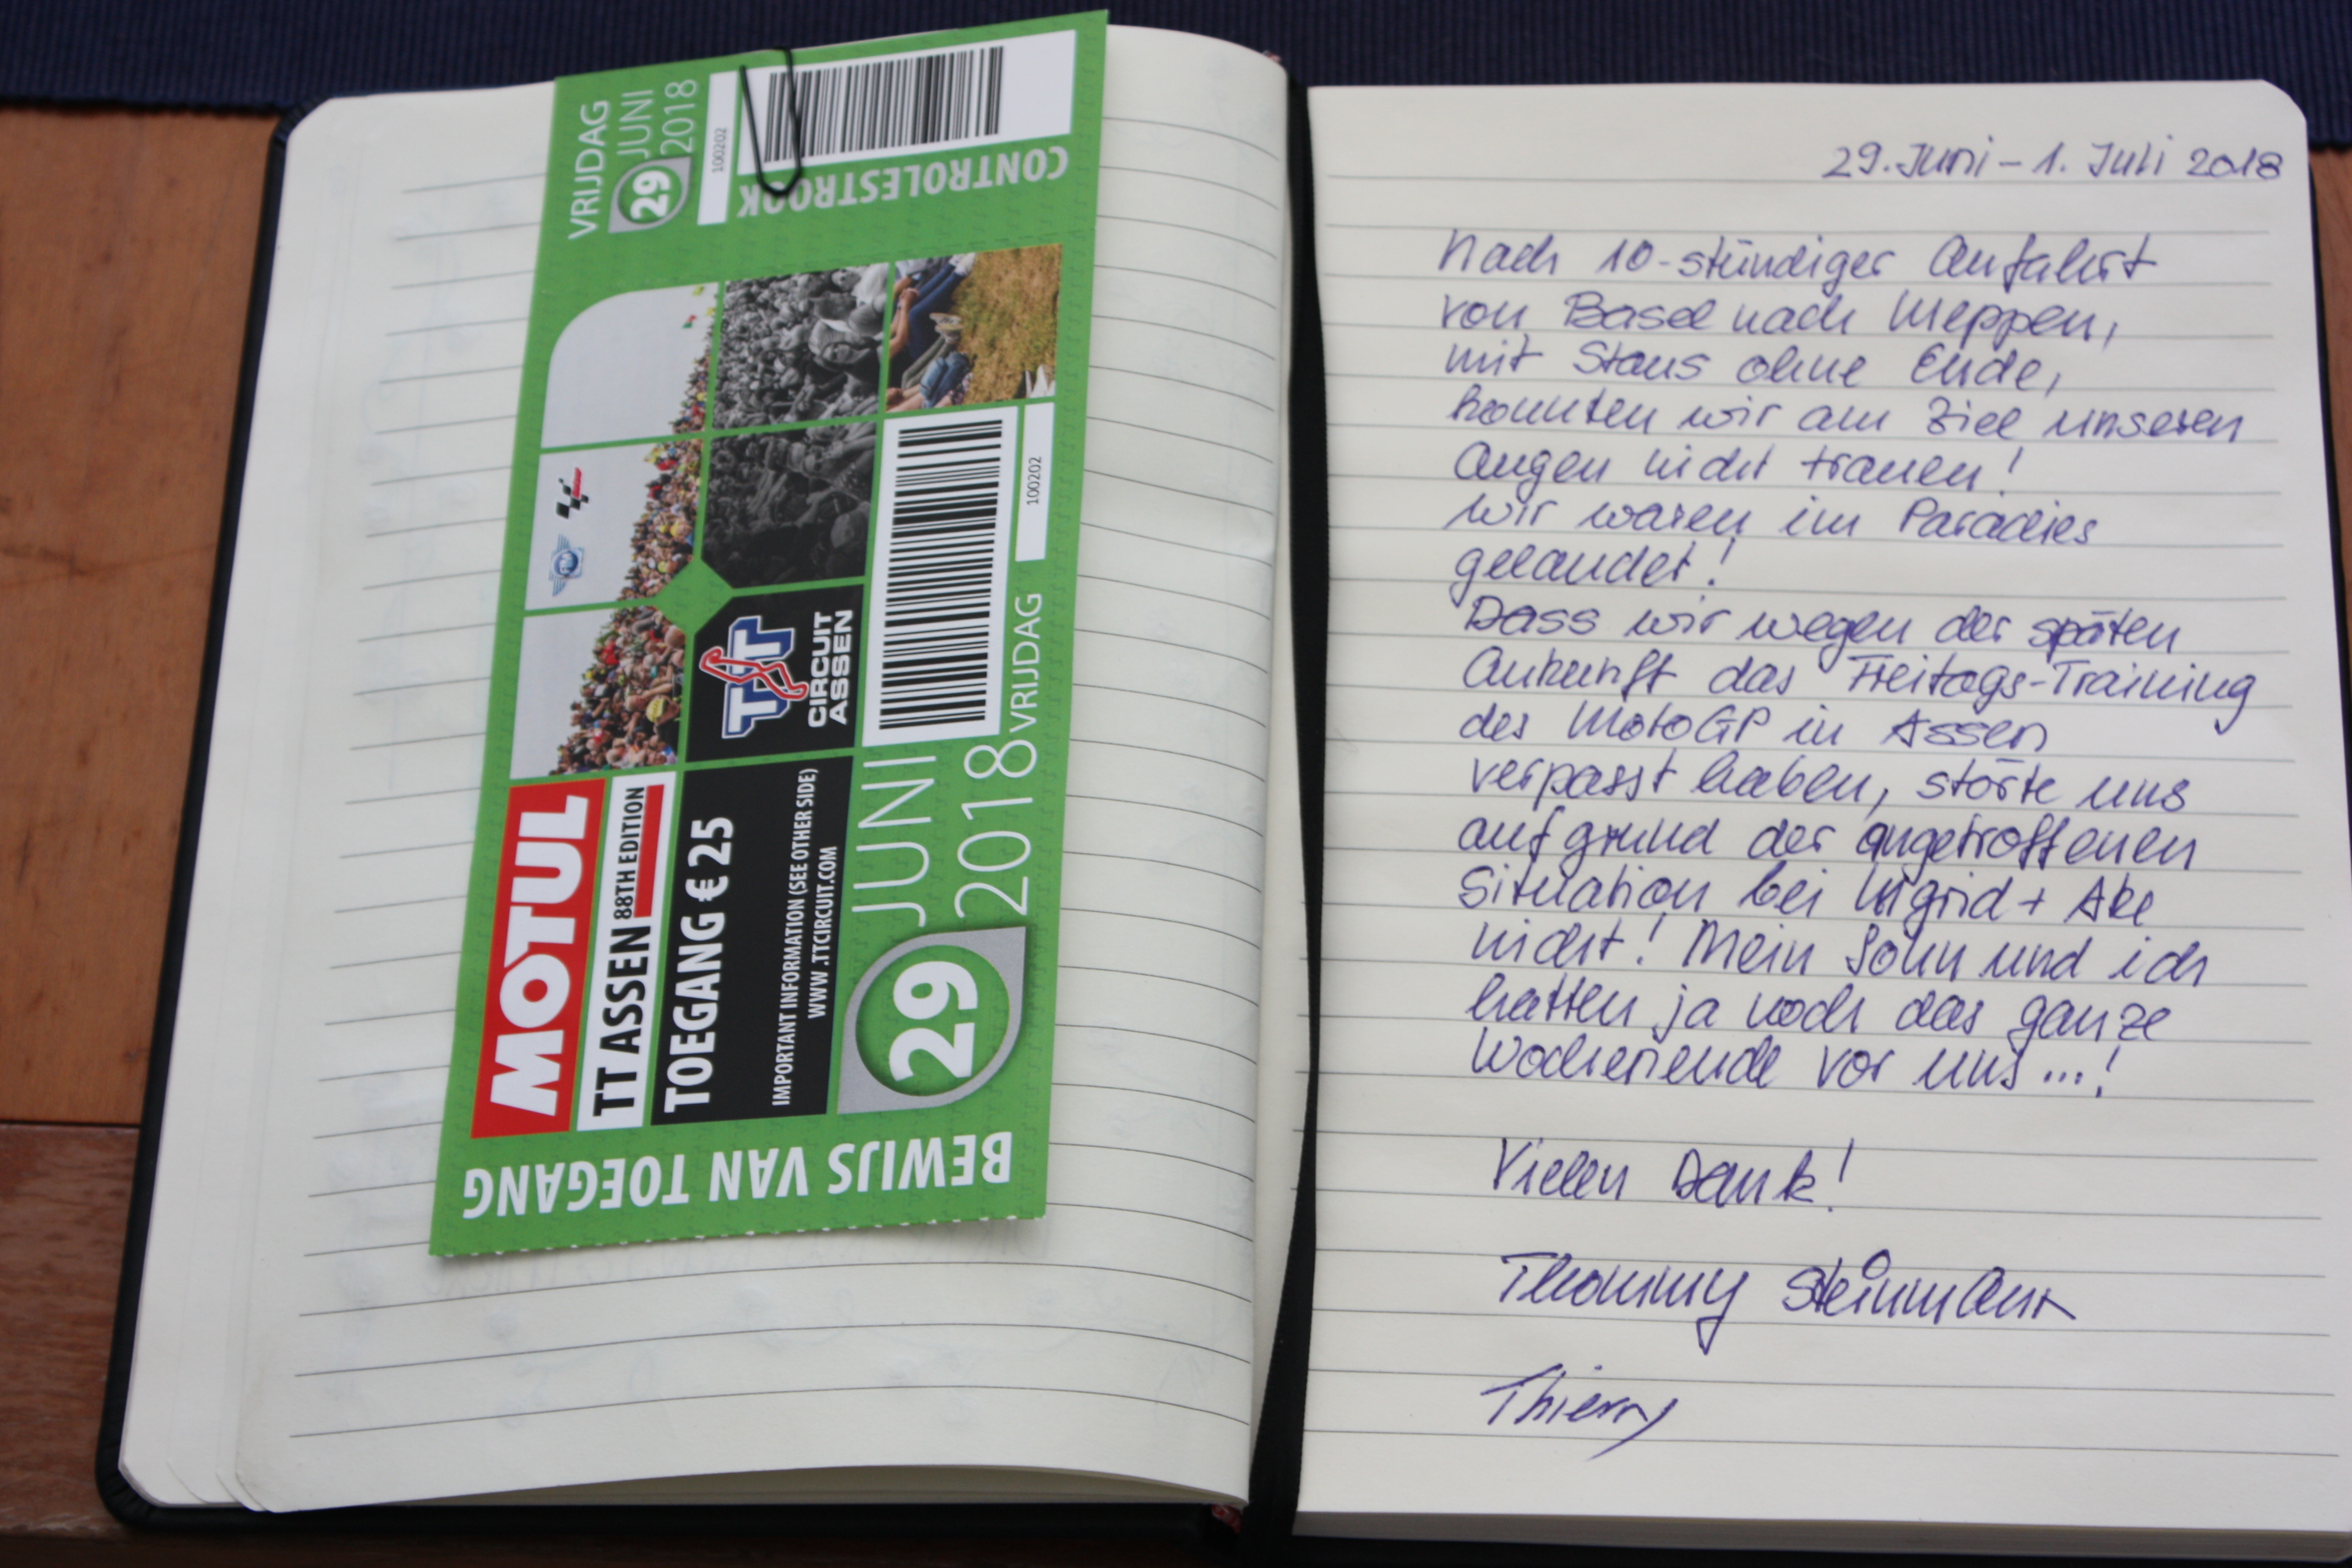 VRIJDAG
29 JUNI
2018
100202
CONTROLESTROOK
CIRCUIT
ASSEN
100202
MOTUL
TT ASSEN 88TH EDITION
TOEGANG € 25
IMPORTANT INFORMATION (SEE OTHER SIDE)
WWW.TTCIRCUIT.COM
29 JUNI
2018 VRIJDAG
BEWIJS VAN TOEGANG
29. Juni - 1. Juli 2018
Nach 10-stündiger Anfahrt
von Basel nach Meppen,
mit Staus ohne Ende,
konnten wir am Ziel unseren
Augen nicht trauen!
Wir waren im Paradies
gelandet!
Dass wir wegen der späten
Ankunft das Freitags-Training
des MotoGP in Assen
verpasst haben, störte uns
aufgrund der angetroffenen
Situation bei Ingrid + Ake
nicht! Mein Sohn und ich
hatten ja noch das ganze
Wochenende vor uns...!
Vielen Dank!
Thommy Steinmann
Thierry